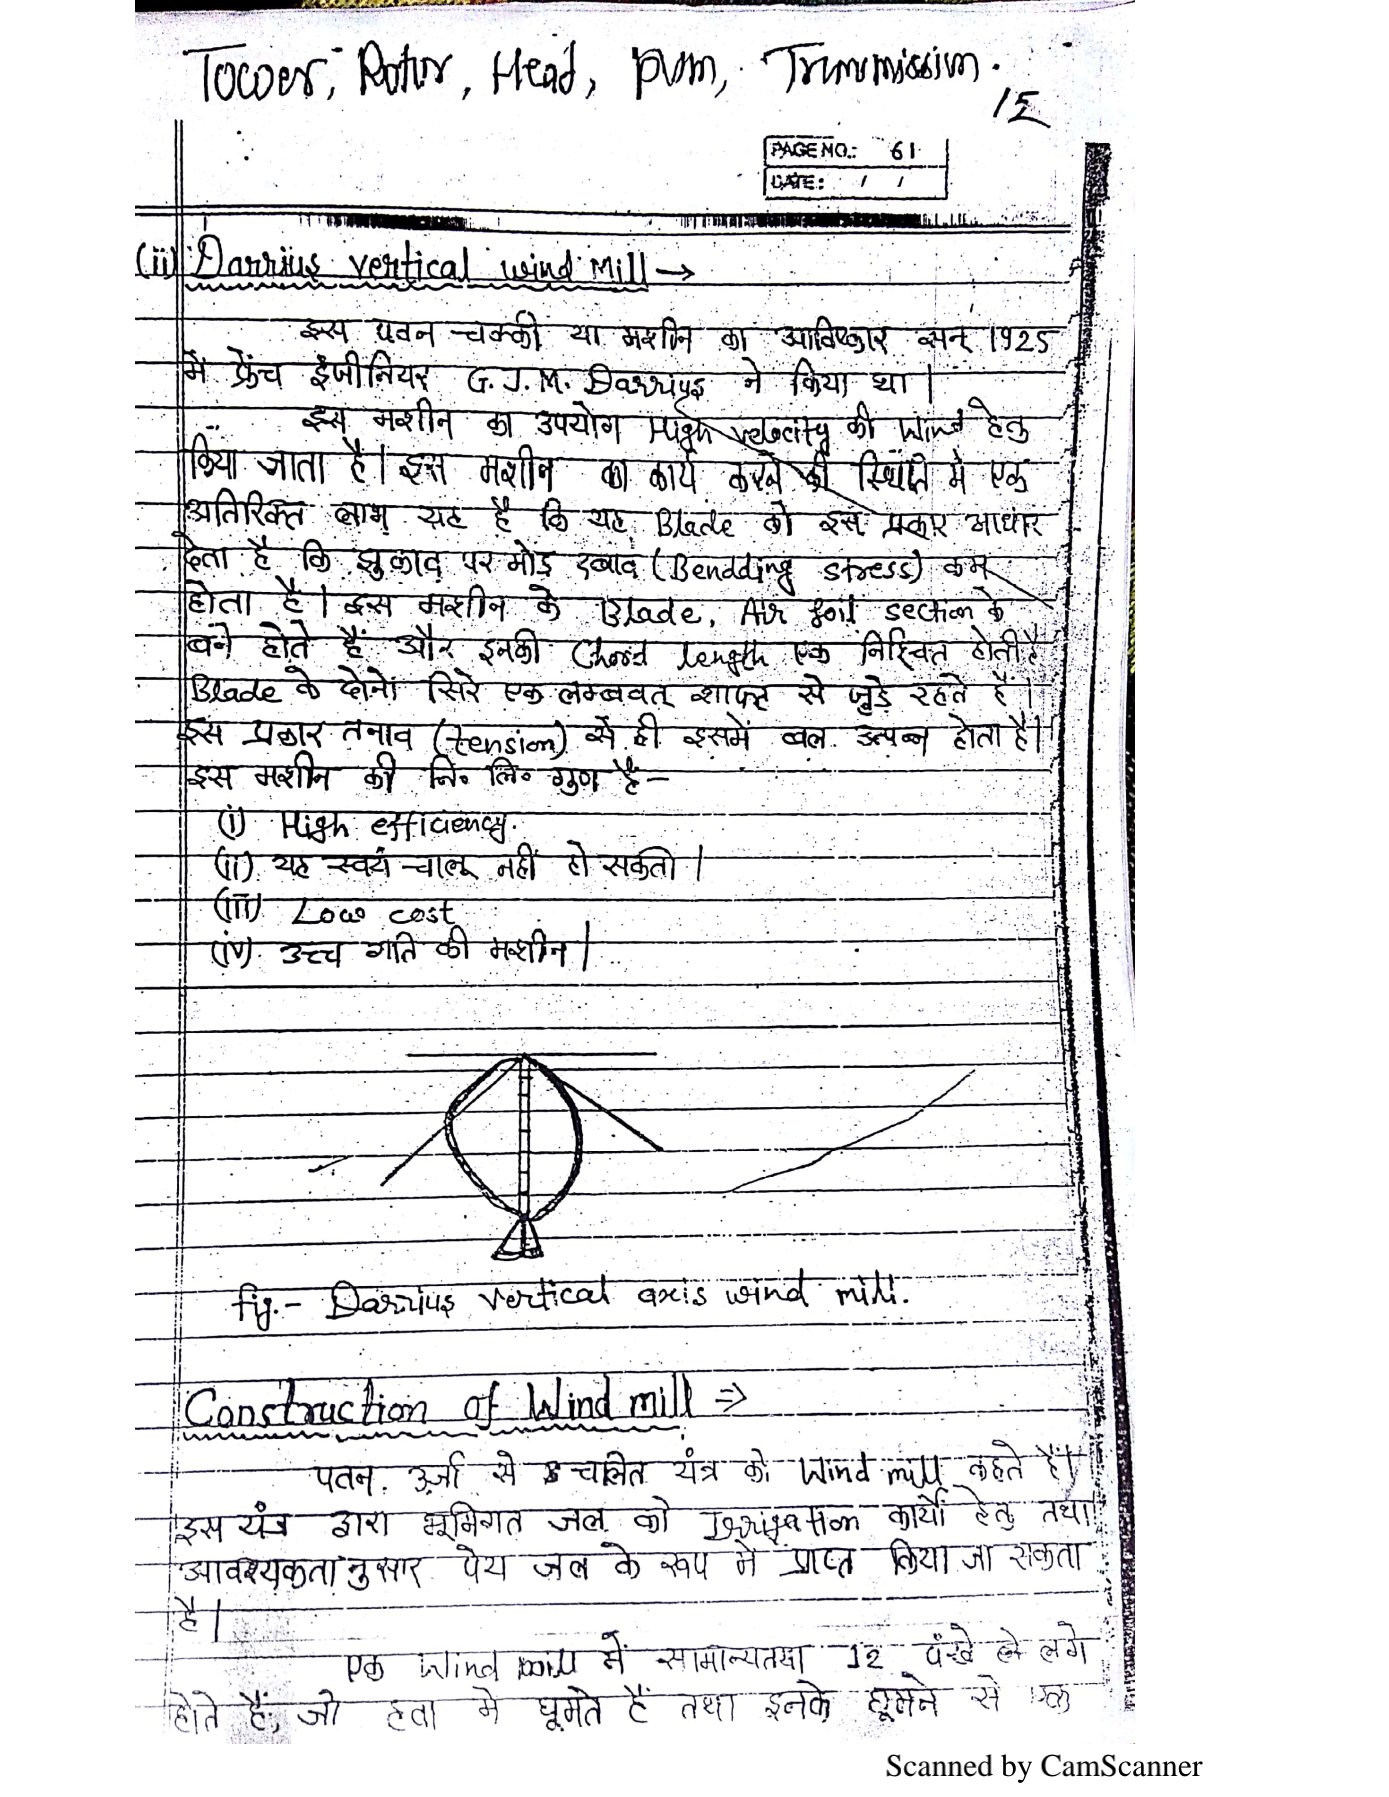 Tower, Rotur, Head, pum, Trnsmission.
15
PAGE NO.: 61
DATE: / /
(ii) Darrius vertical wind Mill →
इस पवन चक्की या मशीन का आविष्कार सन् 1925
में फ्रेंच इंजीनियर G.J.M. Darrius ने किया था।
इस मशीन का उपयोग High velocity की Wind हेतु
किया जाता है। इस मशीन का कार्य करने की स्थिति में एक
अतिरिक्त लाभ यह है कि यह Blade को इस प्रकार आधार
देता है कि झुकाव पर मोड़ दबाव (Bendding stress) कम
होता है। इस मशीन के Blade, Air foil section के
बने होते हैं और इनकी Chord length एक निश्चित होती है
Blade के दोनों सिरे एक लम्बवत् शाफ्ट से जुड़े रहते हैं।
इस प्रकार तनाव (tension) से ही इसमें बल उत्पन्न होता है।
इस मशीन की नि॰ लि॰ गुण है-
(i) High efficiency.
(ii) यह स्वयं चालू नहीं हो सकती।
(iii) Low cost
(iv) उच्च गति की मशीन।
fig.- Darrius vertical axis wind mill.
Construction of Wind mill ⇒
पतन ऊर्जा से चलित यंत्र को Wind mill कहते हैं।
इस यंत्र द्वारा भूमिगत जल को Irrigation कार्यों हेतु तथा
आवश्यकतानुसार पेय जल के रूप में प्राप्त किया जा सकता
है।
एक Wind mill में सामान्यतया 12 पंखे लगे
होते हैं, जो हवा में घूमते हैं तथा इनके घूमने से एक
Scanned by CamScanner